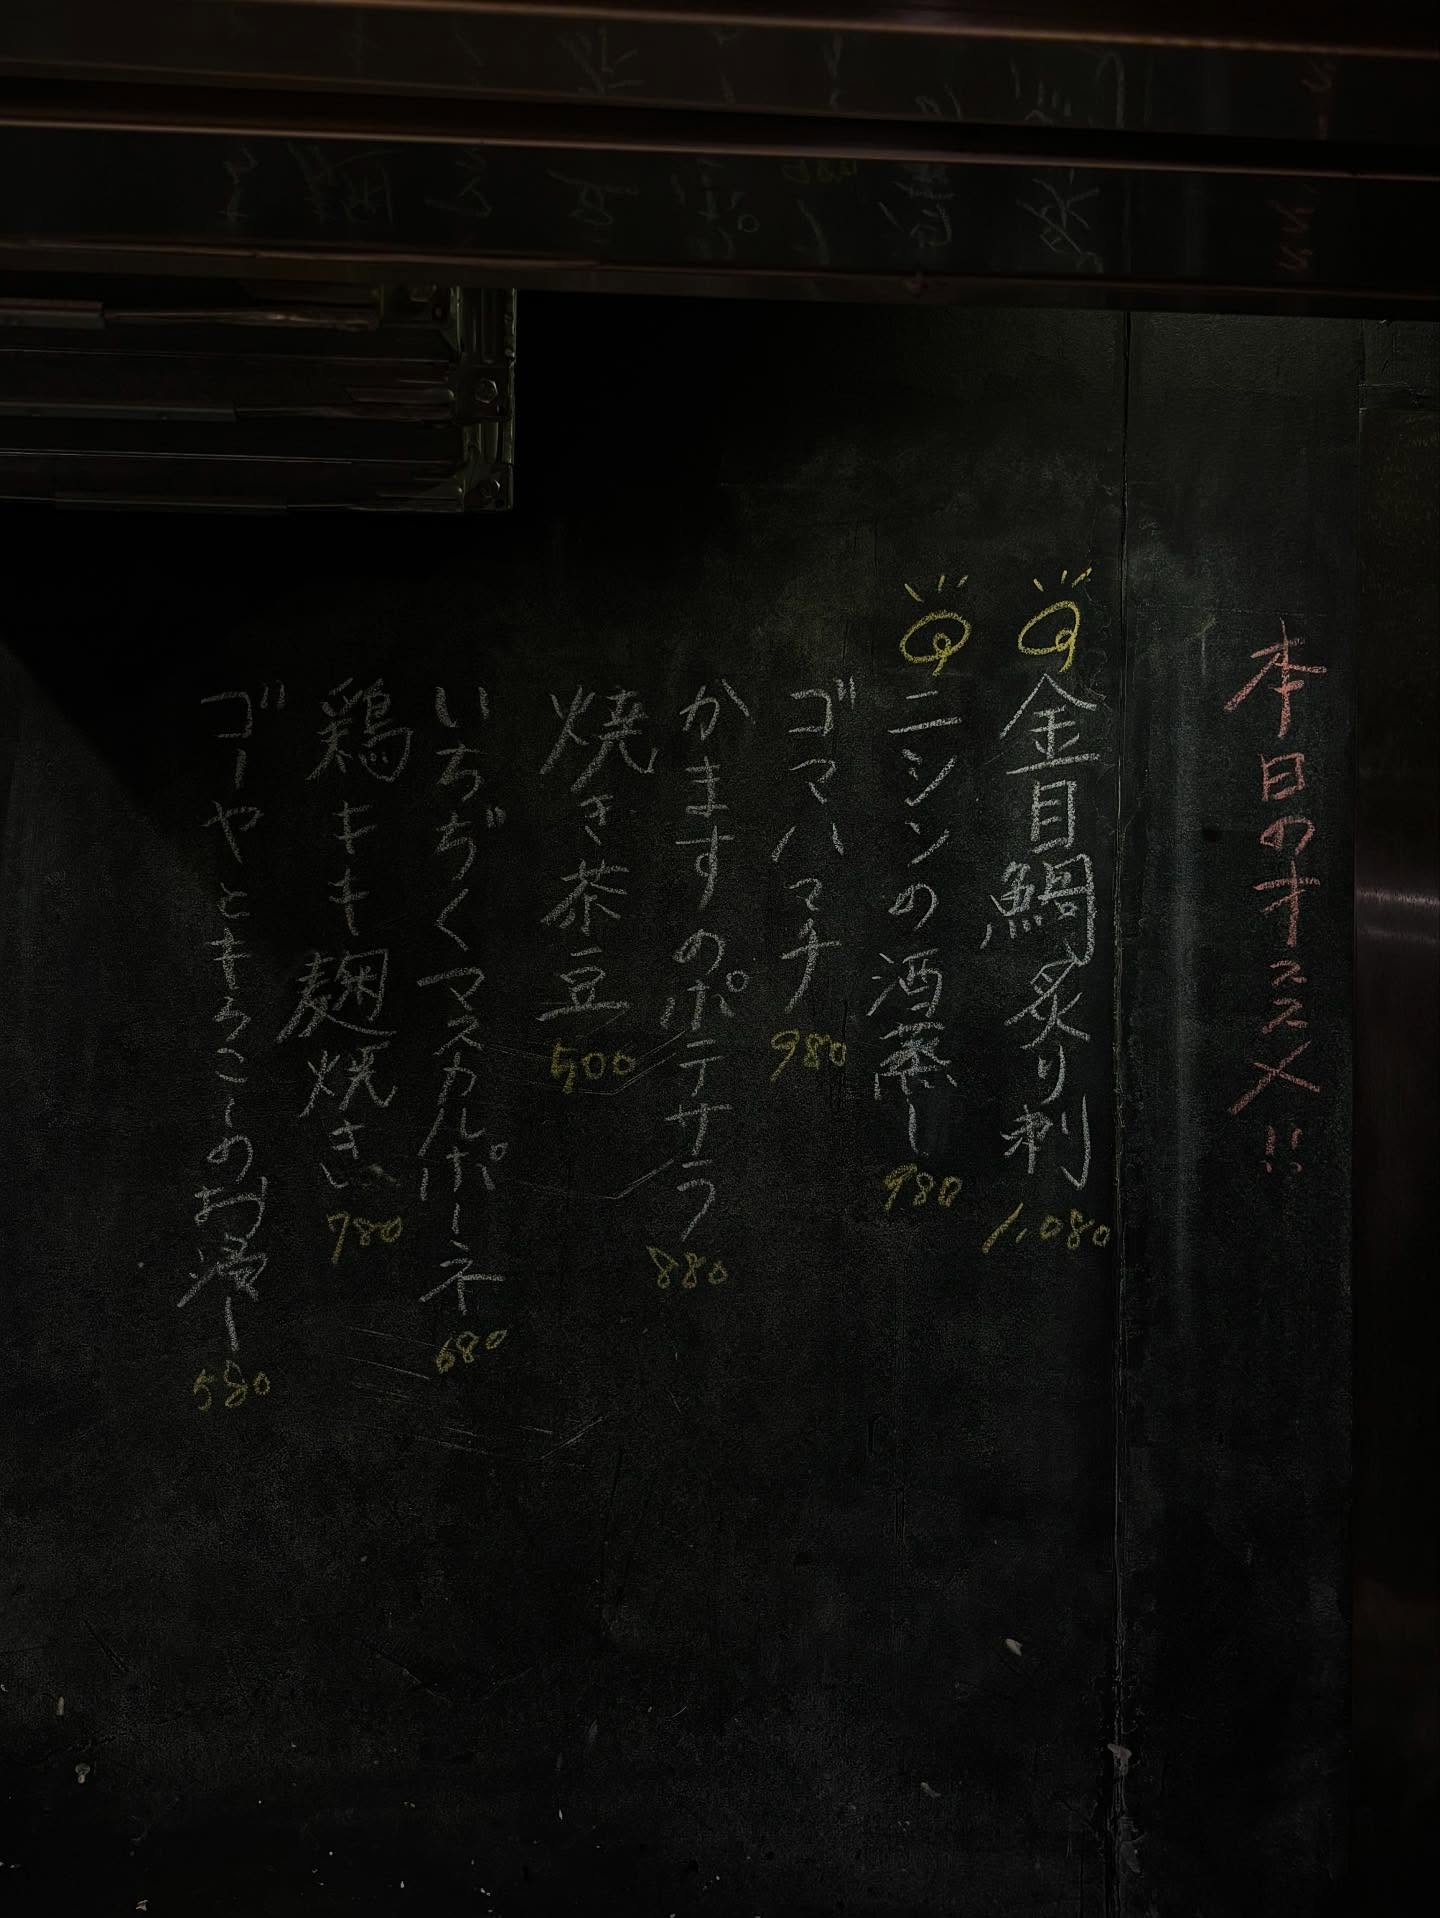 本日のオススメ!!
金目鯛炙り刺 1,080
ニシンの酒蒸し 980
ゴマハマチ 980
かますのポテサラ 880
焼き茶豆 500
いちぢくマスカルポーネ 680
鶏キキ麹焼き 780
ゴーヤとキうこーのお浸し 580